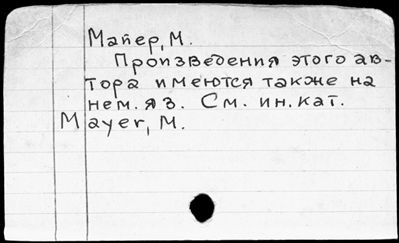 Майер, М.
Произведения этого ав-
тора имеются также на
нем. яз. См. ин. кат.
Mayer, M.